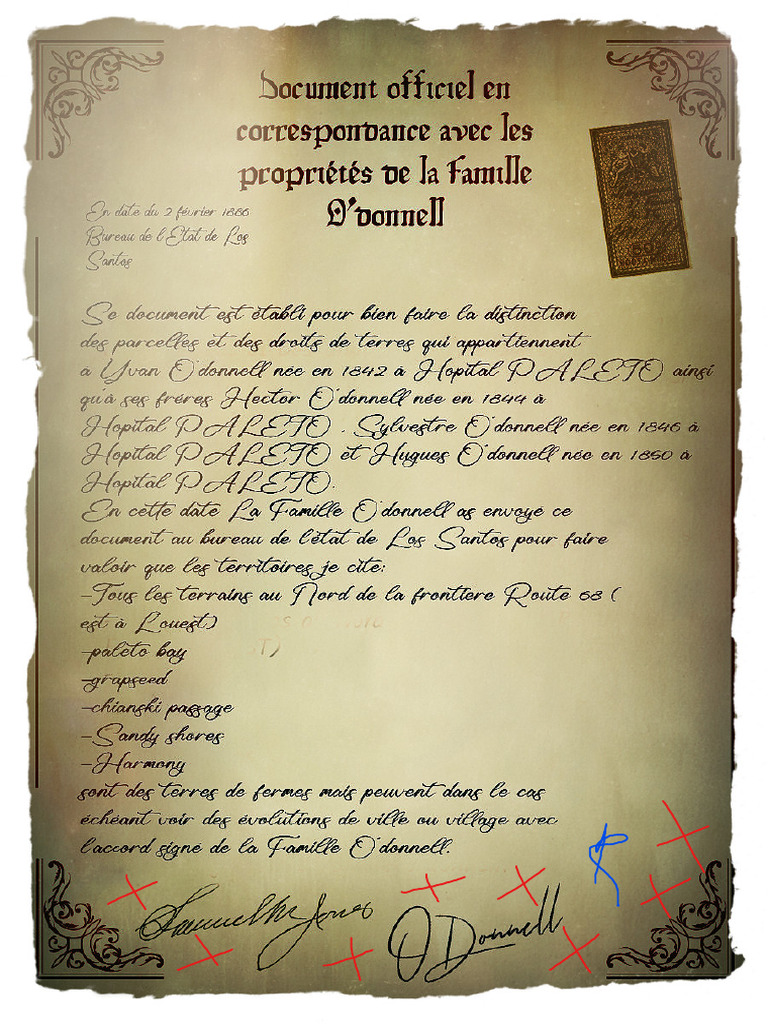 Document officiel en
correspondance avec les
propriétés de la Famille
O'donnell
En date du 2 février 1886
Bureau de l'Etat de Los
Santos
Se document est établi pour bien faire la distinction
des parcelles et des droits de terres qui appartiennent
a Yvan O'donnell née en 1842 à Hopital PALETO ainsi
qu'à ses fréres Hector O'donnell née en 1844 à
Hopital PALETO , Sylvestre O'donnell née en 1846 à
Hopital PALETO et Hugues O'donnell née en 1850 à
Hopital PALETO.
En cette date La Famille O'donnell as envoyé ce
document au bureau de l'état de Los Santos pour faire
valoir que les territoires je cite:
-Tous les terrains au Nord de la frontiere Route 68 (
est à Louest)
-paleto bay
-grapseed
-chianski passage
-Sandy shores
-Harmony
sont des terres de fermes mais peuvent dans le cas
échéant voir des évolutions de ville ou village avec
l'accord signé de la Famille O'donnell.
O'Donnell